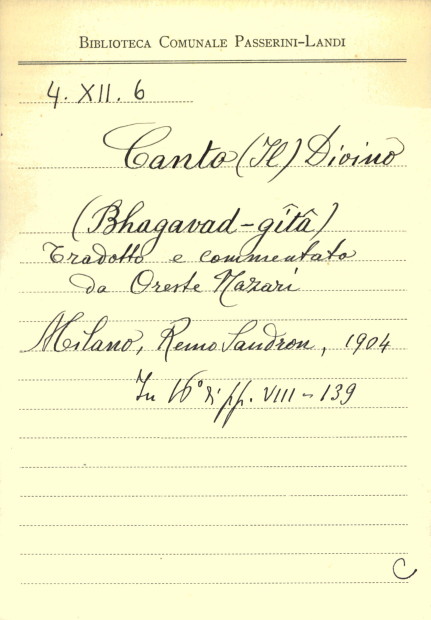 BIBLIOTECA COMUNALE PASSERINI-LANDI
4. XII. 6
Canto (Il) Divino
(Bhagavad-gîtâ)
Tradotto e commentato
da Oreste Nazari
Milano, Remo Sandron, 1904
In 16° di pp. VIII - 139
C